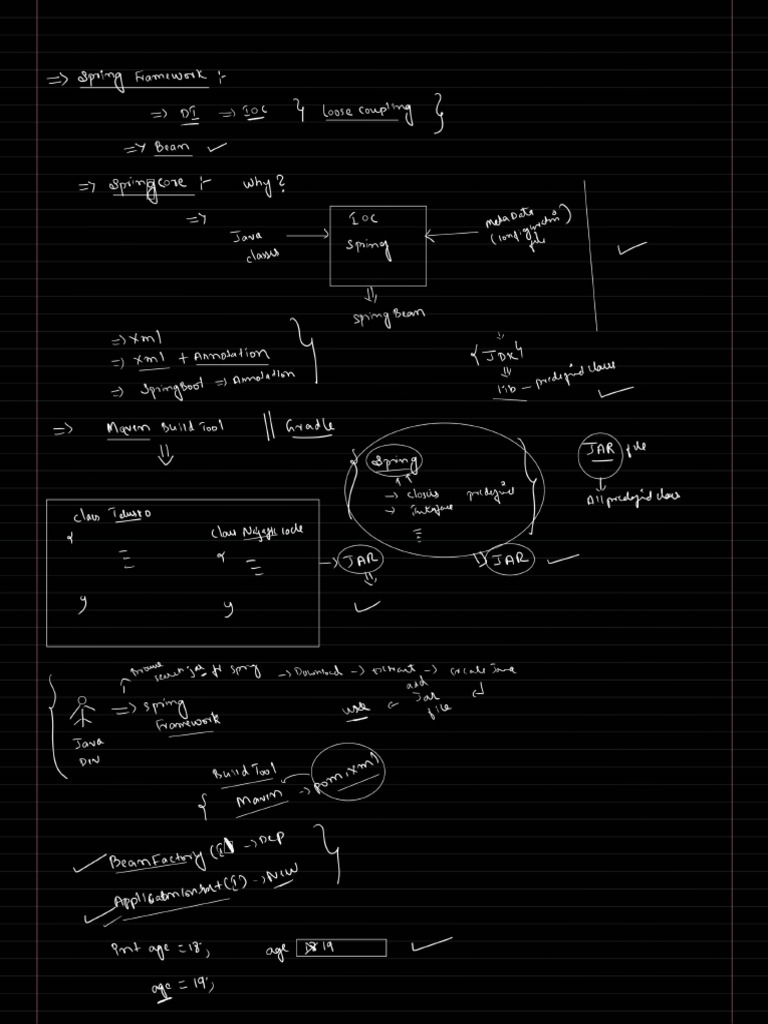 => Spring Framework :-
=> DI => IOC { Loose coupling }
=> Bean ✓
=> Springcore :- Why?
=>
Java classes
IOC
Spring
MetaData
(configuration)
file
✓
Spring Bean
=> Xml
=> Xml + Annotation
=> SpringBoot => Annotation
{ JDK }
lib - predefind class
✓
=> Maven Build Tool || Gradle
Spring
-> classes predefind
-> interface
JAR file
All predefind class
class Telusko
{
}
class
{
}
-> JAR
✓
JAR ✓
Browse
search jar for spring -> Download -> Extract -> create Java
add
Jar
file
use
Java
=> Spring
Framework
Build Tool
{ Maven -> pom.xml
✓ BeanFactory (I) -> Dep
✓ (I) -> New
Int age = 18;
age 18 19 ✓
age = 19;